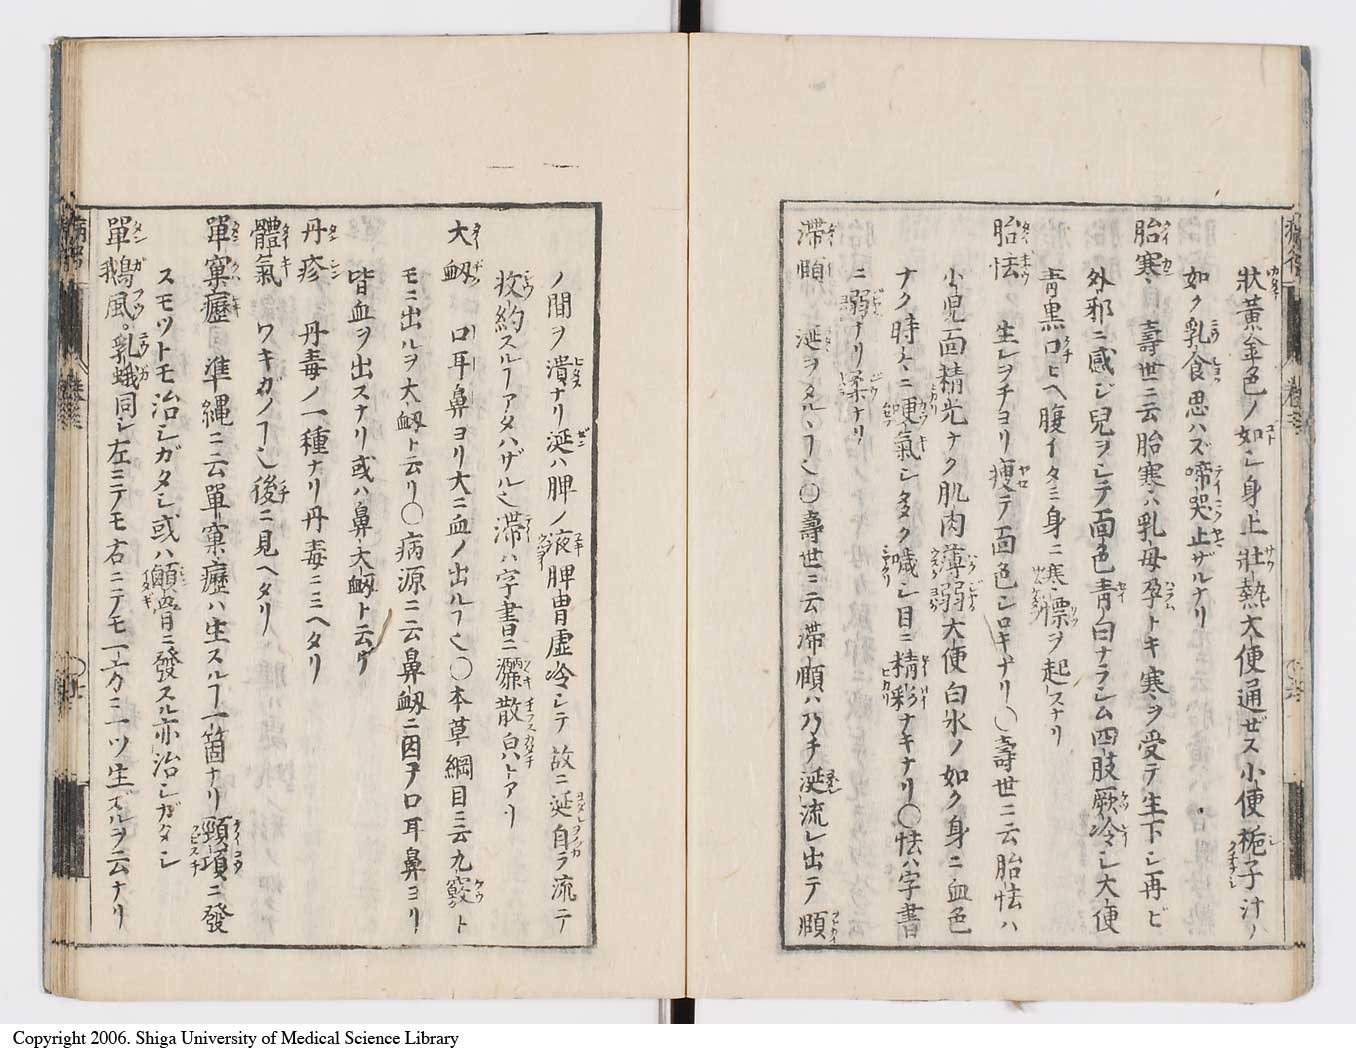 狀黃金色ノ如シ身上壯熱大便通ゼズ小便梔子汁ノ
如ク乳食思ハズ啼哭止ザルナリ
胎寒 壽世ニ云胎寒ハ乳母孕トキ寒ヲ受テ生下シ再ビ
外邪ニ感ジ兒ヲシテ面色青白ナラシム四肢厥冷シ大便
青黒口ヒヘ腹イタミ身ニ寒慄ヲ起スナリ
胎怯 生レヲチヨリ瘦テ面色シロキナリ○壽世ニ云胎怯ハ
小兒面精光ナク肌肉薄弱大便白水ノ如ク身ニ血色
ナク時々ニ哽氣シ多ク噦シ目ニ精彩ナキナリ○怯ハ字書
ニ弱ナリ柔ナリ
滯頤 涎ヲタルヽヿ也○壽世ニ云滯頤ハ乃チ涎流レ出テ頤
ノ間ヲ漬ナリ涎ハ脾ノ液脾胃虚冷シテ故ニ涎自ラ流テ
收約スルヿアタハザル也滯ハ字書ニ灑散皃トアリ
大衂 口耳鼻ヨリ大ニ血ノ出ルヿ也○本草綱目ニ云九竅ト
モニ出ルヲ大衂ト云リ○病源ニ云鼻衂ニ因テ口耳鼻ヨリ
皆血ヲ出スナリ或ハ鼻大衂ト云ケ
丹疹 丹毒ノ一種ナリ丹毒ニミヘタリ
體氣 ワキガノヿ也後ニ見ヘタリ
單窠癧 準縄ニ云單窠癧ハ生スルヿ一箇ナリ頸項ニ發
スモツトモ治シガタシ或ハ顛ニ發スル亦治シガタシ
單鵝風 乳蛾同シ左ニテモ右ニテモ一方ニ一ツ生ズルヲ云ナリ
Copyright 2006. Shiga University of Medical Science Library